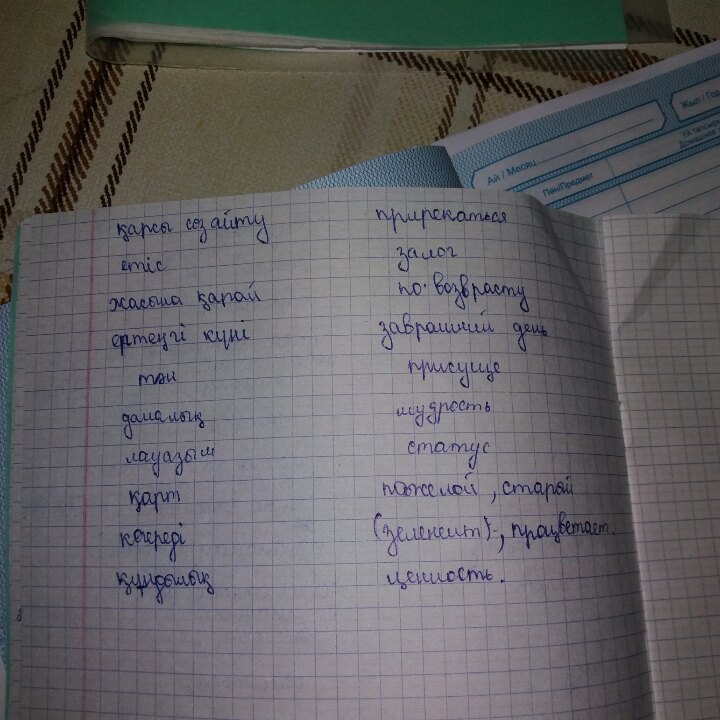 Жыл / Год
Ай / Месяц
Пән/Предмет
қарсы сөз айту пририкаться
етіс залог
жасына қарай по возврасту
ертеңгі күні заврашний день
тән присуще
даналық мудрость
лауазым статус
қарт пожелой, старый
көгереді (зеленеит)-, працветает.
құндылық ценность.